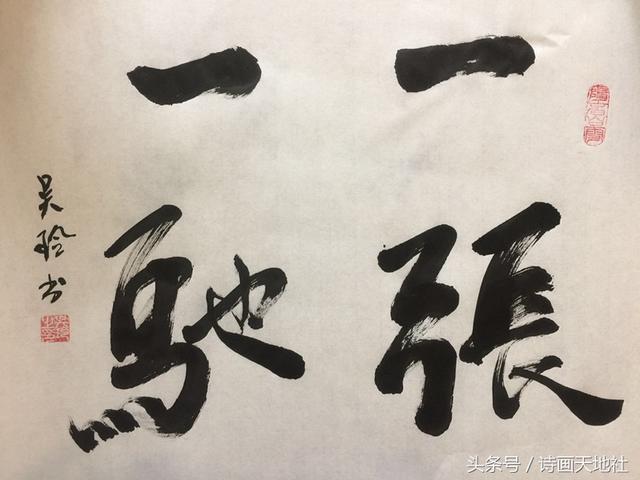 一張
一馳
吴玲书
头条号／诗画天地社